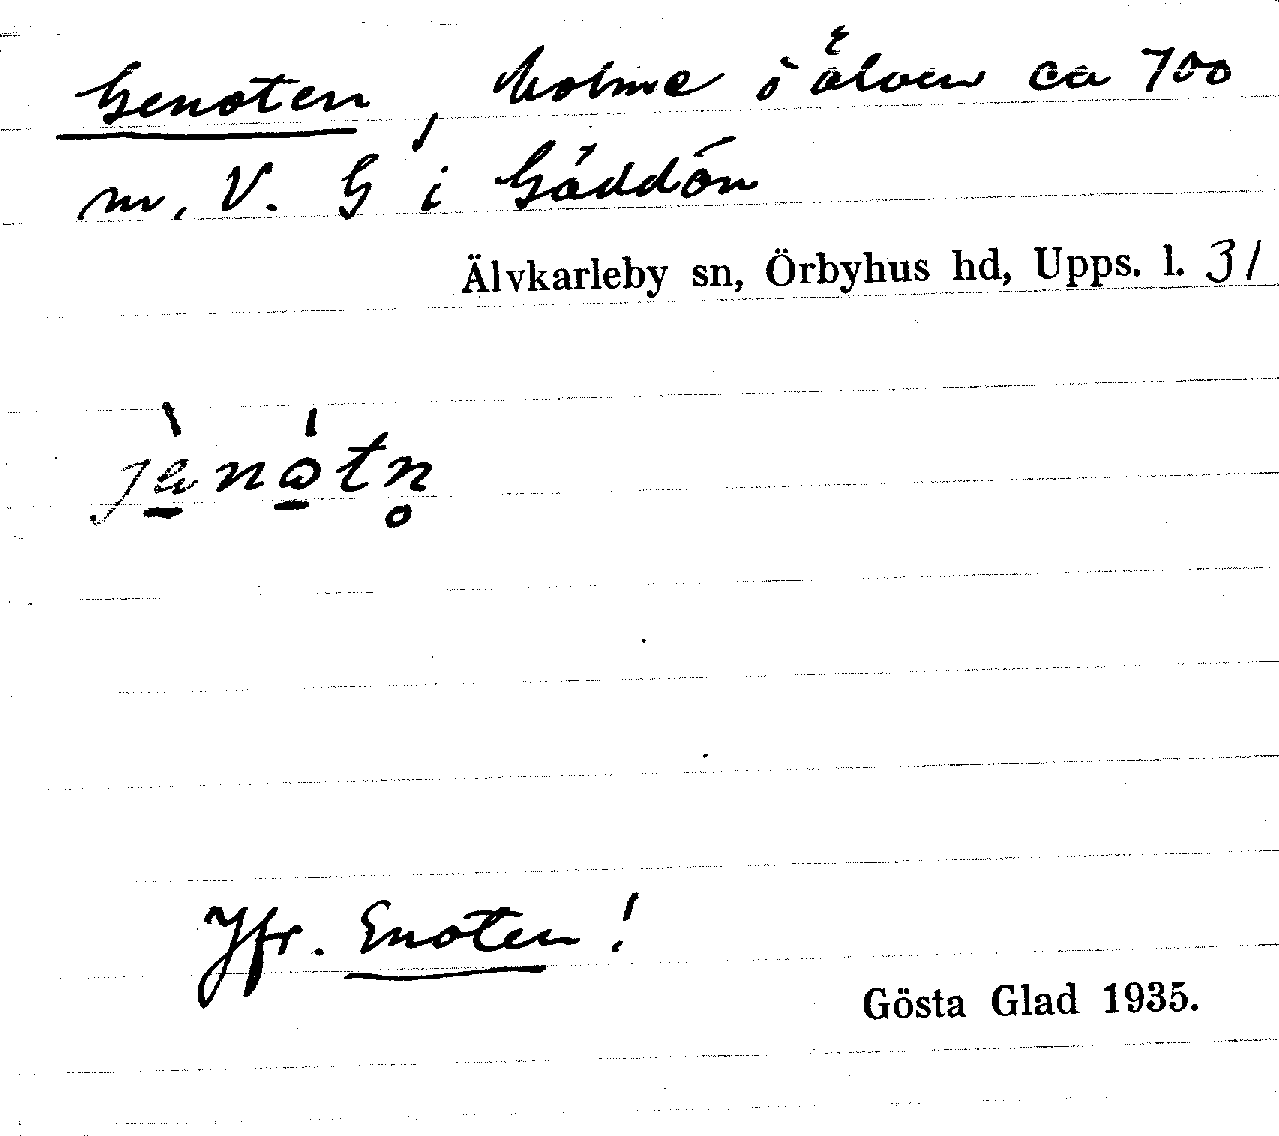 Genoten, holme i älven ca 700
m. V. G i Gäddön
Älvkarleby sn, Örbyhus hd, Upps. l. 31
jènòtn̥
Jfr. Enoten!
Gösta Glad 1935.